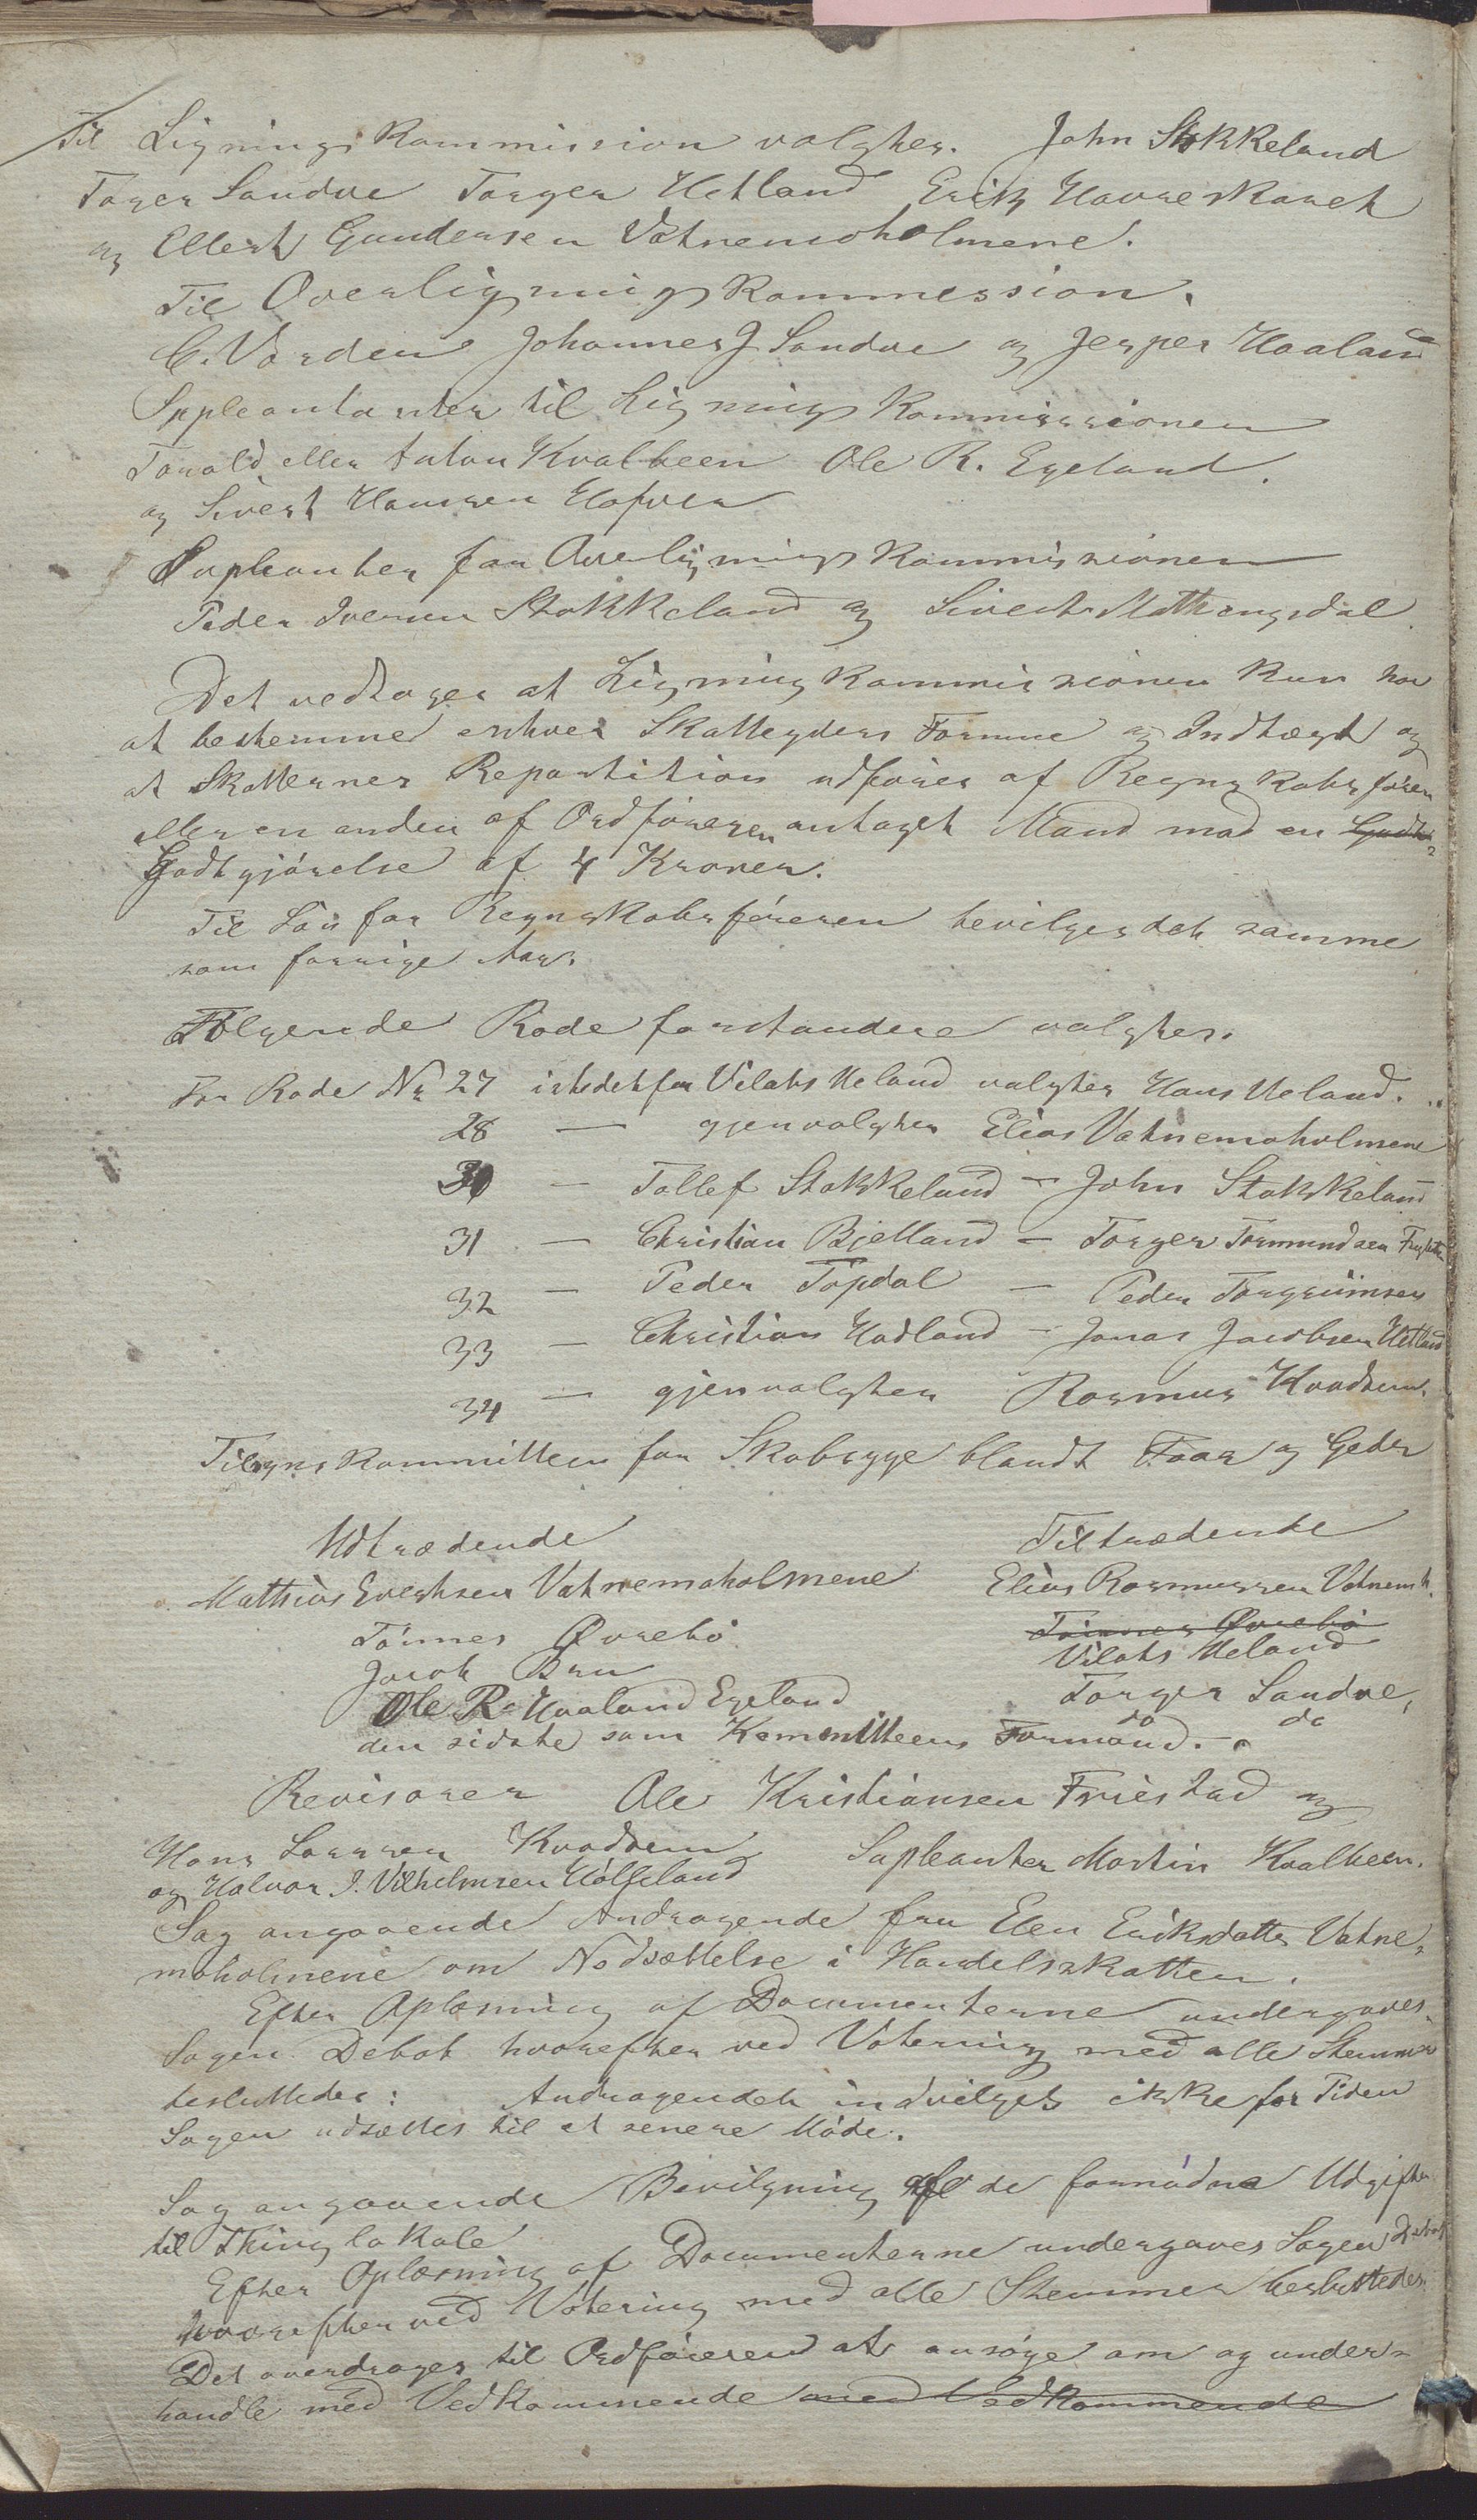 Til Lignings Kommission valgtes. John Stokkeland
Torger Sandve Torger Hetland Erik Havreskaret
og Ellert Gundersen Vatnemoholmene.
Til Overligningskommession.
C. Varden Johannes J Sandve og Jesper Haaland
Suppleantanter til Ligningskommissionen
Torald eller Anton Kvalbeen Ole R. Egeland.
og Sivert Hanssen Hofven
Supleanter for Overligningskommissionen
Peder Iversen Stokkeland og Sivert Mathengsdal.
Det vedtages at Ligningkommissionen kun har
at bestemme enhver Skatteyders Formue og Indtægt og
at Skatternes Repartition udføres af Regnskabsfører
eller en anden af Ordføreren antaget Mand mod en Godt-
Godtgjørelse af 4 Kroner.
Til Løn for Regnskabsføreren bevilges det samme
som forrige Aar.
Følgende Rodeforstandere valgtes.
For Rode No 27 istedetfor Vilats Ueland valgtes Hans Ueland.
28 — gjenvalgtes Elias Vatnemoholmene
30 — Tollef Stokkeland — John Stokkeland
31 — Christian Bjelland — Torger Tormundsen
32 — Peder Topdal — Peder Torgrimsen
33 — Christian Hadland — Jonas Jacobsen Hetland
34 — gjenvalgtes Rasmus Kvadsem.
Tilsynskommitteen for Skabsyge blandt Faar og Geder
Udtrædende Tiltrædende
Mathias Evertsen Vatnemoholmene Elias Rasmussen Vatnemh.
Tønnes Øvrebø Tønnes Øvrebø
Jacob Bru Vilats Ueland
Ole R. Haaland Egeland Torger Sandve,
den sidste som Kommitteens Formand. do do
Revisorer Ole Kristiansen Friestad og
Hans Larssen Kvadsem Supleanter Martin Kvalbeen.
og Halvor J. Vilhelmsen Hølleland
Sag angaaende Andragende fra Elen Eriksdatter Vatne-
moholmene om Nedsættelse i Handelsskatten.
Efter Oplæsning af Documenterne undergaves
Sagen Debat hvorefter ved Votering med alle Stemmer
besluttedes: Andragendet indvilges ikke for Tiden
Sagen udsættes til et senere Møde.
Sag angaaende Bevilgning af de fornødne Udgifter
til Thinglokale
Efter Oplæsning af Documenterne undergaves Sagen Debat
hvorefter ved Votering med alle Stemmer besluttedes
Det overdrages til Ordføreren at ansøge om og under-
handle med Vedkommende med Vedkommende